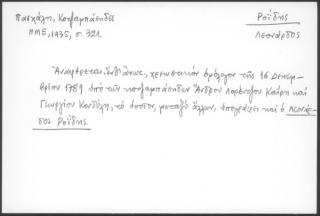 Πασχάλη, Κοτζαμπάσηδες
ΗΜΕ, 1935, σ. 321.
Ροΐδης
Λεονάρδος
χρεωστικὸν ὁμόλογον τῆς 16 Δεκεμ-
βρίου 1789 ὑπὸ τῶν κοτζαμπάσηδων Ἄνδρου Λορέντζου Καΐρη καὶ
Γεωργίου Κονδύλη, τὸ ὁποῖον, μεταξὺ ἄλλων, ὑπογράφει καὶ ὁ Λεονάρ-
δος Ροΐδης.